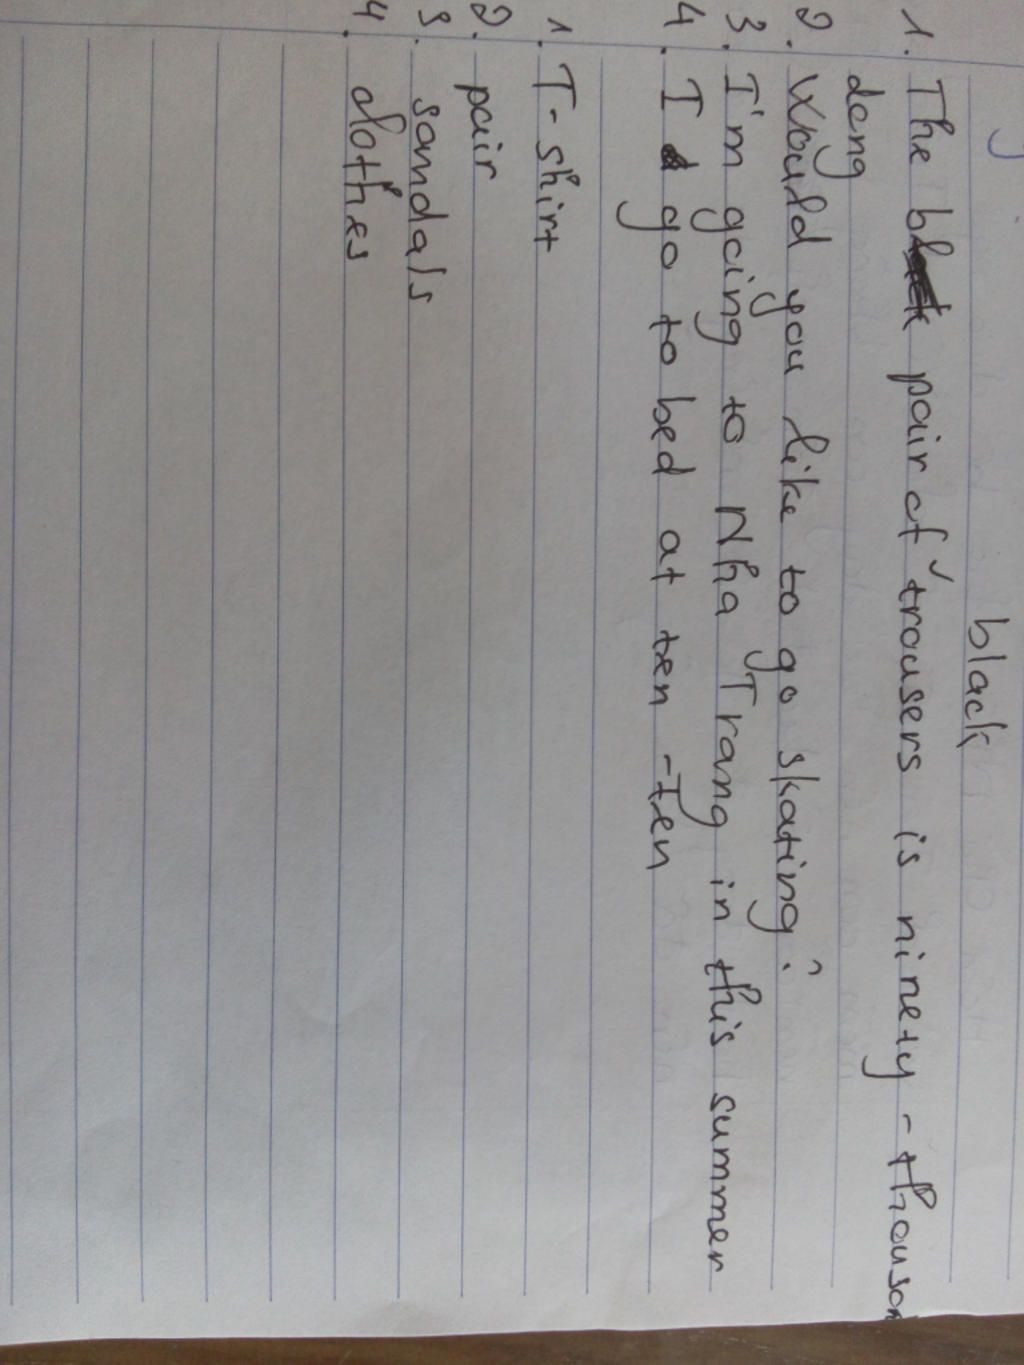 black
1. The pair of trousers is ninety - thouson
deng
2. Would you like to go skating?
3. I'm going to Nha Trang in this summer
4. I go to bed at ten - Ten
1. T-shirt
2. pair
3. sandals
4. clothes